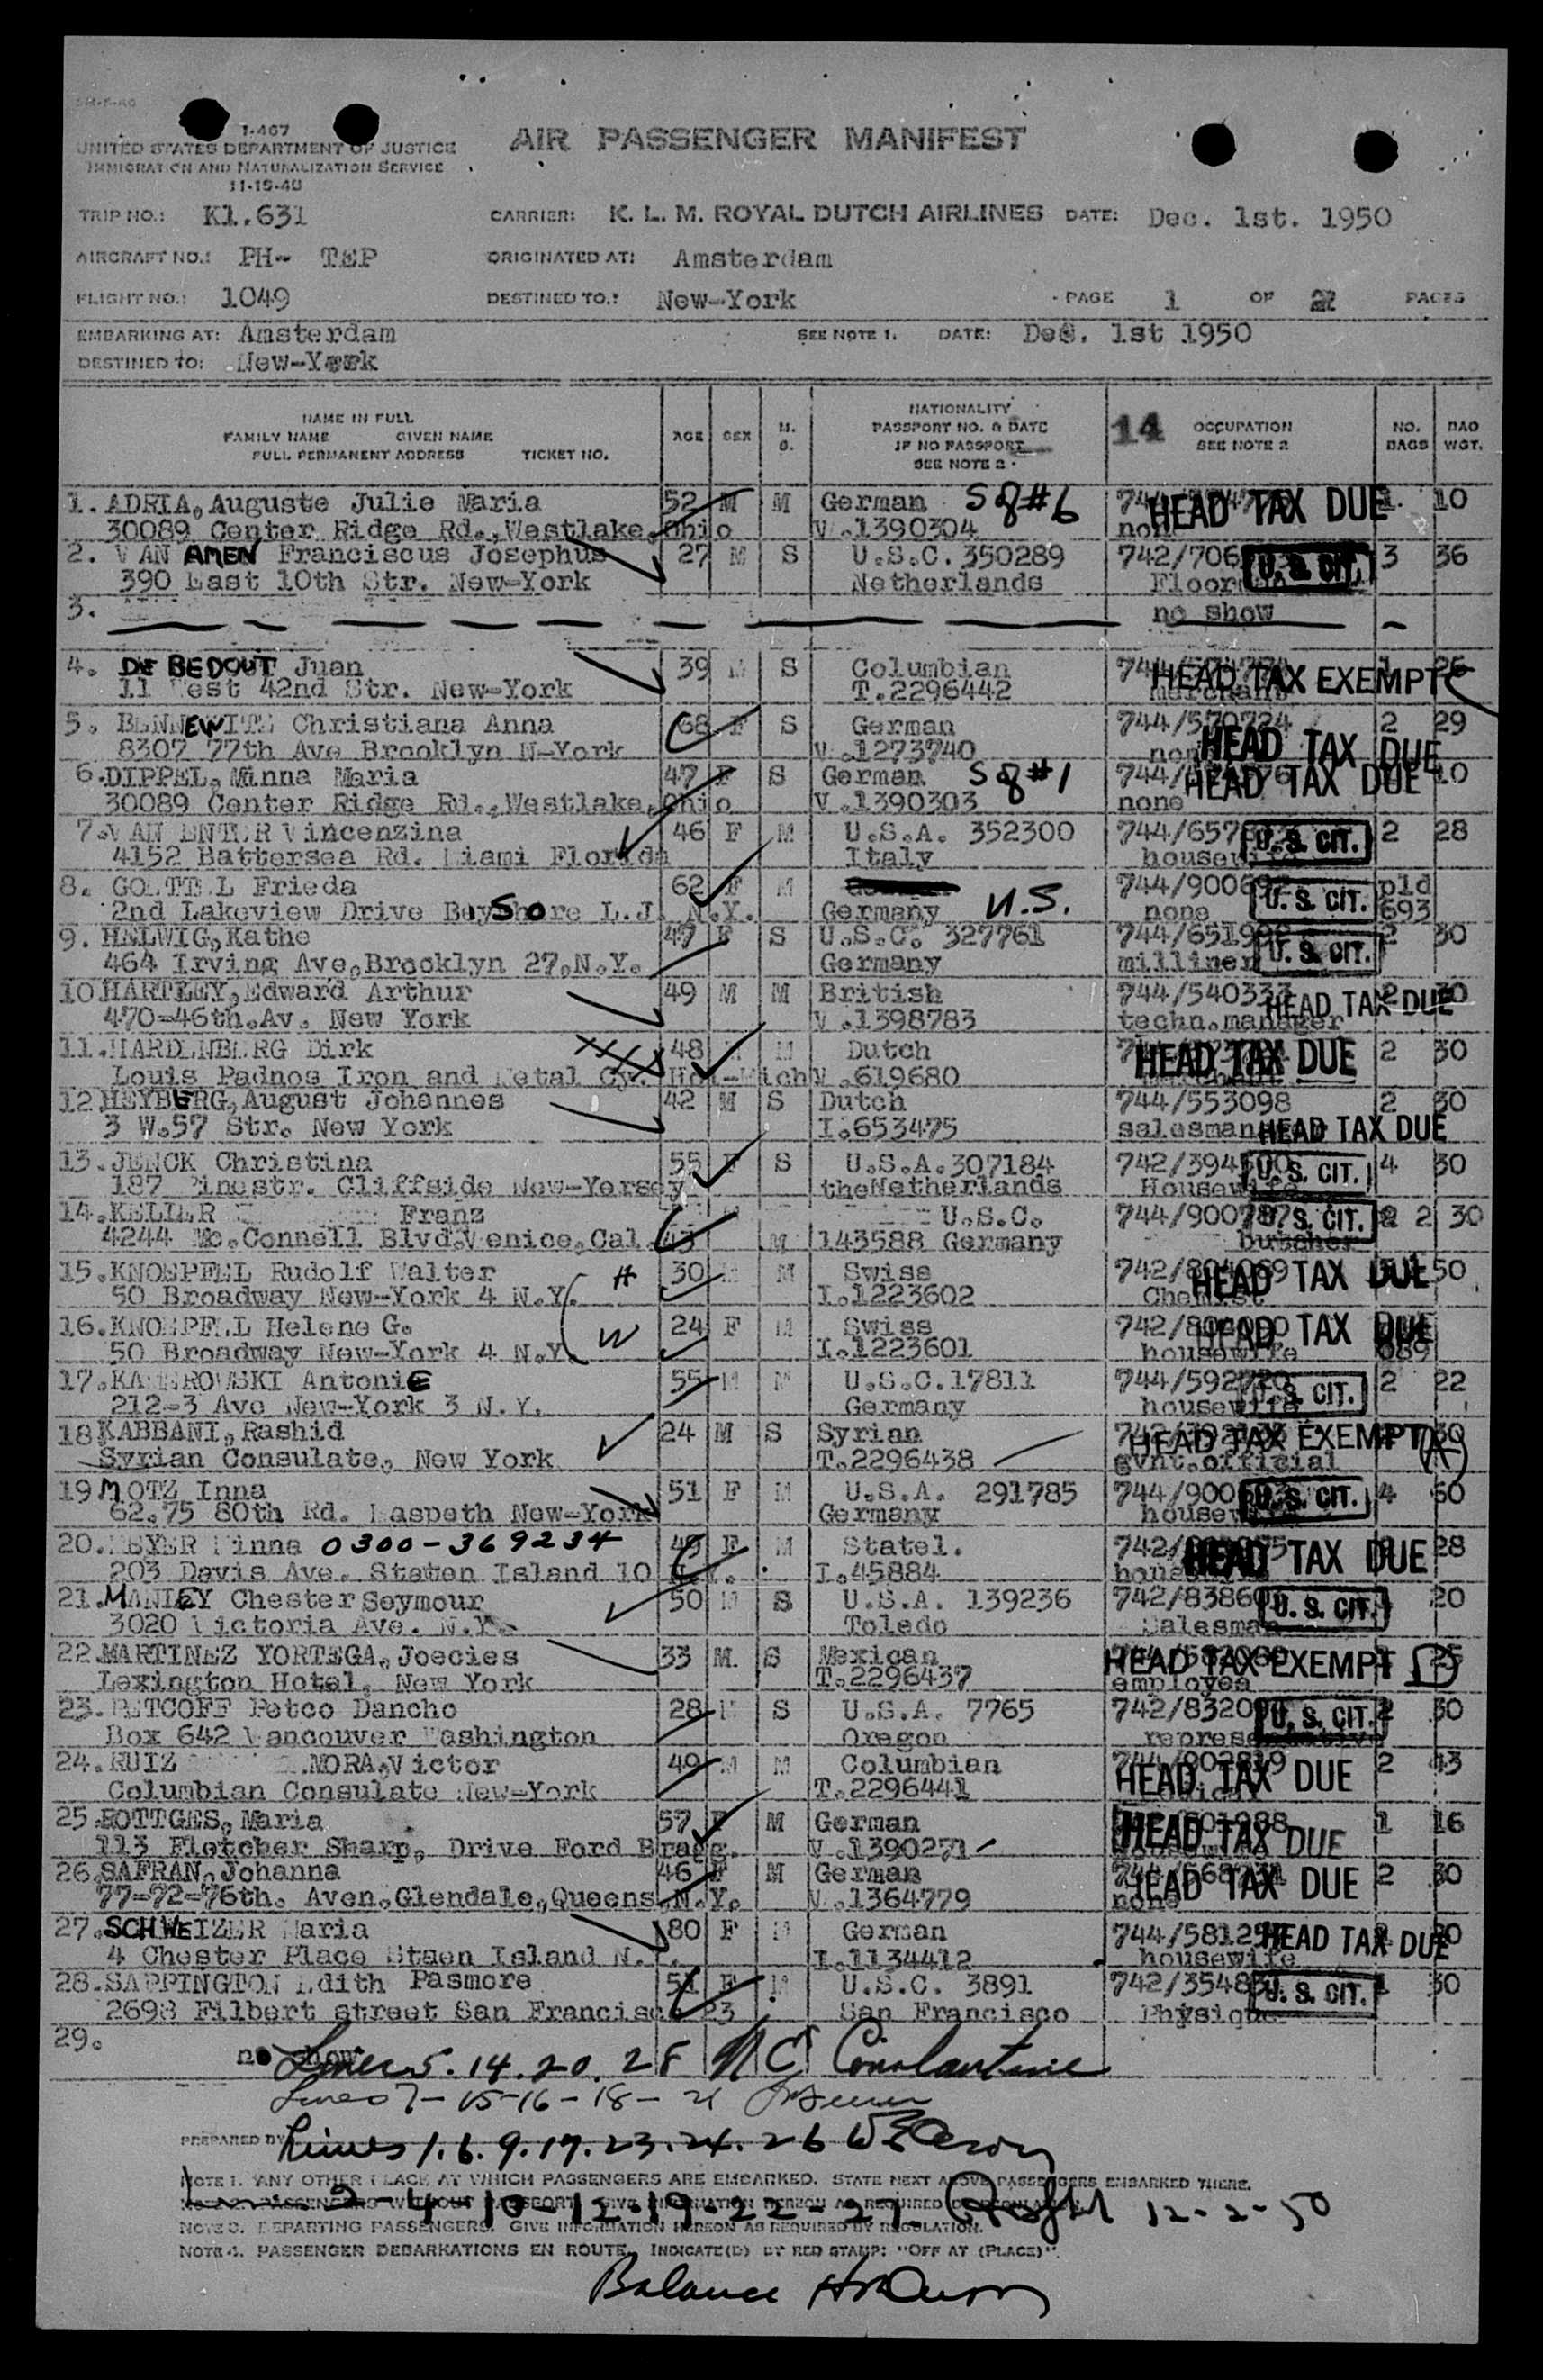 I-467
UNITED STATES DEPARTMENT OF JUSTICE
IMMIGRATION AND NATURALIZATION SERVICE
11-15-40
AIR PASSENGER MANIFEST
TRIP NO.: Kl.631 CARRIER: K. L. M. ROYAL DUTCH AIRLINES DATE: Dec. 1st. 1950
AIRCRAFT NO.: PH- TEP ORIGINATED AT: Amsterdam
FLIGHT NO.: 1049 DESTINED TO.: New-York PAGE 1 OF 2 PAGES
EMBARKING AT: Amsterdam SEE NOTE 1. DATE: Dec. 1st 1950
DESTINED TO: New-York
NAME IN FULL
FAMILY NAME GIVEN NAME
FULL PERMANENT ADDRESS TICKET NO.
AGE SEX M. S.
NATIONALITY
PASSPORT NO. & DATE
IF NO PASSPORT
SEE NOTE 2
14 OCCUPATION
SEE NOTE 2
NO. BAGS BAG WGT.
1. ADRIA, Auguste Julie Maria 52 M M German S 8#6 HEAD TAX DUE 1 10
30089 Center Ridge Rd., Westlake, Ohio V.1390304 none
2. VAN AMEN Franciscus Josephus 27 M S U.S.C. 350289 742/706 U. S. CIT. 3 36
390 East 10th Str. New-York Netherlands
3. no show
4. DE BEDOUT Juan 39 M S Columbian HEAD TAX EXEMPT 26
11 West 42nd Str. New-York T.2296442
5. BENNEWITZ Christiana Anna 68 F S German 744/570724 2 29
8307 77th Ave Brooklyn N-York V.1273740 HEAD TAX DUE
6. DIPPEL, Minna Maria 47 F S German S 8#1 HEAD TAX DUE 10
30089 Center Ridge Rd., Westlake, Ohio V.1390303 none
7. VAN ENTER Vincenzina 46 F M U.S.A. 352300 744/657 U. S. CIT. 2 28
4152 Battersea Rd. Miami Florida Italy housewife
8. Frieda 62 F M U.S. 744/900 U. S. CIT. pld
2nd Lakeview Drive Bay Shore L.J. N.Y. Germany none 693
9. HELWIG, Kathe 47 F S U.S.C. 327761 744/651 U. S. CIT. 2 30
464 Irving Ave, Brooklyn 27, N.Y. Germany milliner
10. HARTLEY, Edward Arthur 49 M M British 744/540333 HEAD TAX DUE 2 30
470-46th. Av. New York V.1398783 techn. manager
11. HARDENBERG Dirk 48 M M Dutch HEAD TAX DUE 2 30
Louis Padnos Iron and Metal Cy. Hol-Mich V.619680
12. HEYBERG, August Johannes 42 M S Dutch 744/553098 2 30
3 W.57 Str. New York I.653475 salesman HEAD TAX DUE
13. JENCK Christina 55 F S U.S.A. 307184 742/394 U. S. CIT. 4 30
187 Pinestr. Cliffside New-Yersey the Netherlands Housewife
14. KELLER Franz U.S.C. 744/900 U. S. CIT. 2 30
4244 Mc. Connell Blvd. Venice, Cal. 43 M 143588 Germany butcher
15. KNOEPFEL Rudolf Walter H 30 M M Swiss HEAD TAX DUE 50
50 Broadway New-York 4 N.Y. I.1223602 Chemist
16. KNOEPFEL Helene G. W 24 F M Swiss HEAD TAX DUE
50 Broadway New-York 4 N.Y. I.1223601 housewife 689
17. Antonie 55 M M U.S.C. 17811 744/592 U. S. CIT. 2 22
212-3 Ave New-York 3 N.Y. Germany housewife
18. KABBANI, Rashid 24 M S Syrian HEAD TAX EXEMPT (A) 30
Syrian Consulate, New York T.2296438 gvnt. official
19. MOTZ Inna 51 F M U.S.A. 291785 744/900 U. S. CIT. 4 60
62.75 80th Rd. Maspeth New-York Germany housewife
20. MEYER Minna 0300-369234 49 F M Statel. HEAD TAX DUE 28
203 Davis Ave. Staten Island 10 N.Y. I.45884
21. MANLEY Chester Seymour 50 M S U.S.A. 139236 742/8386 U. S. CIT. 20
3020 Victoria Ave. N.Y. Toledo Salesman
22. MARTINEZ YORTEGA, Joecies 33 M. S Mexican HEAD TAX EXEMPT 25
Lexington Hotel, New York T.2296437 employee
23. PETCOFF Petco Dancho 28 M S U.S.A. 7765 742/8320 U. S. CIT. 2 30
Box 642 Vancouver Washington Oregon representative
24. RUIZ MORA, Victor 49 M M Columbian HEAD TAX DUE 2 43
Columbian Consulate New-York T.2296441
25. ROTTGES, Maria 57 F M German HEAD TAX DUE 1 16
113 Fletcher Sharp, Drive Ford Bragg. V.1390271
26. SAFRAN, Johanna 46 F M German HEAD TAX DUE 2 30
77-72-76th. Aven. Glendale, Queens, N.Y. V.1364779 none
27. SCHWEIZER Maria 80 F M German 744/5812 HEAD TAX DUE
4 Chester Place Staen Island N. I.1134412 housewife
28. SAPPINGTON Edith Pasmore 51 F M U.S.C. 3891 742/3548 U. S. CIT. 1 30
2698 Filbert street San Francisc 23 San Francisco
29. no show
Lines 5. 14. 20. 28 N C Constantine
Lines 7-15-16-18-21
PREPARED BY Lines 1. 6. 9. 17. 23. 24. 26
NOTE 1. ANY OTHER PLACE AT WHICH PASSENGERS ARE EMBARKED. STATE NEXT ABOVE PASSENGERS EMBARKED THERE.
2-4-10-12-19-22-27 12-2-50
NOTE 3. DEPARTING PASSENGERS. GIVE INFORMATION HEREON AS REQUIRED BY REGULATION.
NOTE 4. PASSENGER DEBARKATIONS EN ROUTE. INDICATE(D) BY RED STAMP: "OFF AT (PLACE)".
Balance